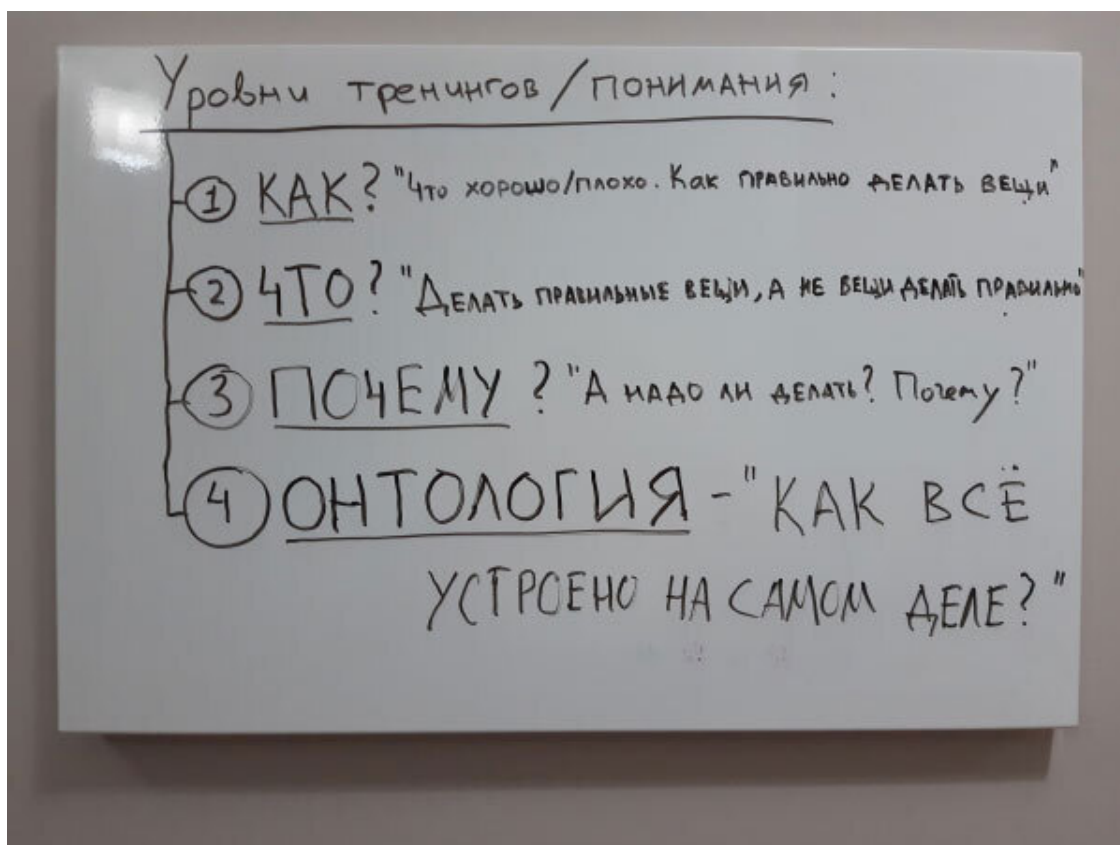 Уровни тренингов/понимания:
1 КАК? "Что хорошо/плохо. Как правильно делать вещи"
2 ЧТО? "Делать правильные вещи, а не вещи делать правильно"
3 ПОЧЕМУ? "А надо ли делать? Почему?"
4 ОНТОЛОГИЯ - "КАК ВСЁ
УСТРОЕНО НА САМОМ ДЕЛЕ?"